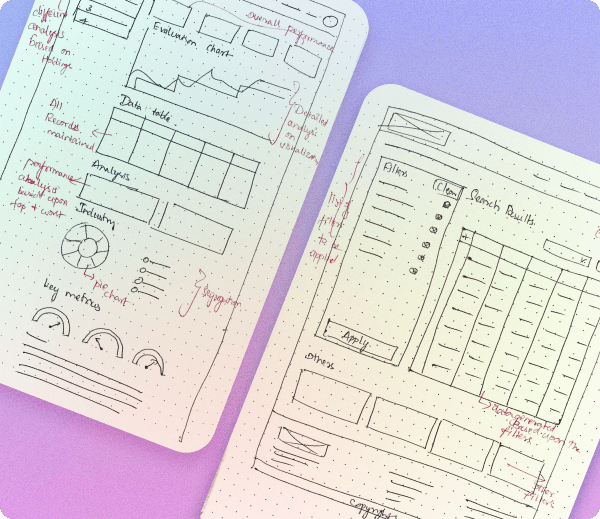 different
analysis
based on
Holdings
Overall performance
Evaluation chart
Detailed
analysis
on
All
Records
maintained
Data table
performance
analysis
based upon
top + worst
Analysis
Industry
pie
chart
Segregation
Key metrics
Filters
Clear
Search Results
list of
filters
to be
applied
Apply
Others
data generated
based upon the
filters
other
filters
Copyright